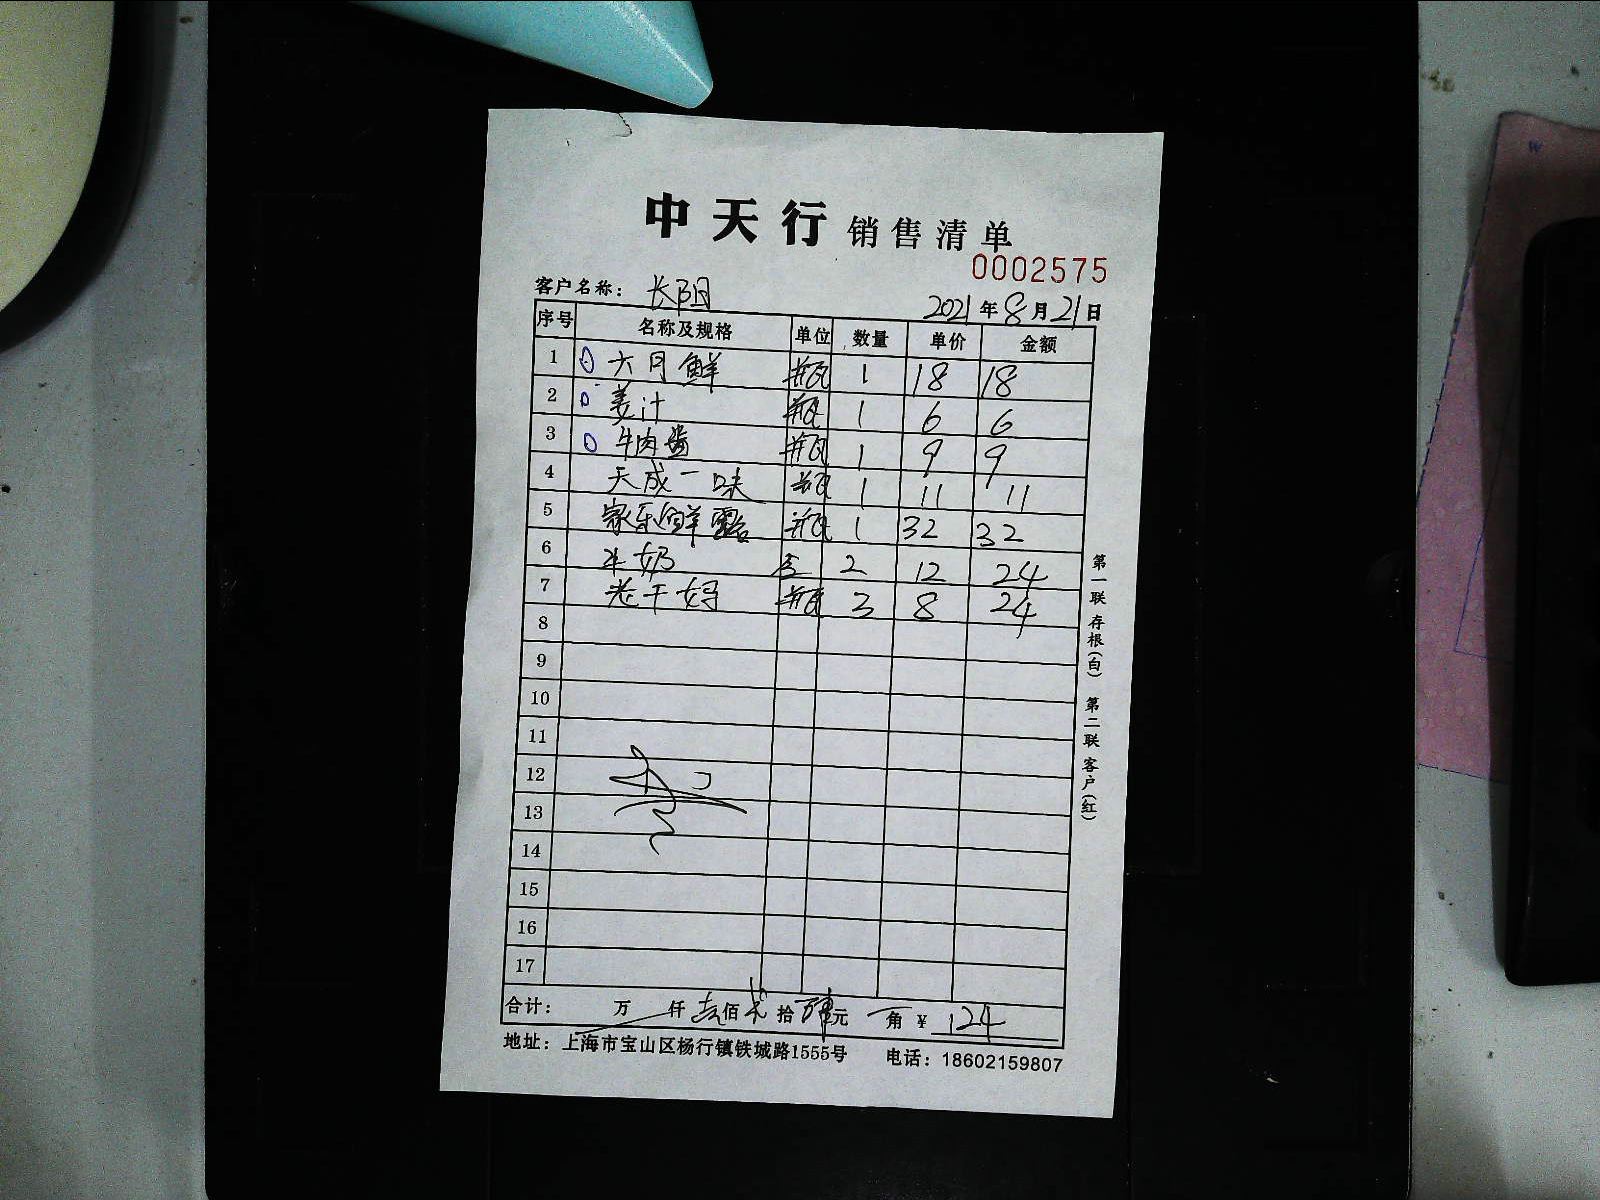 中天行销售清单
0002575
客户名称： 长阳 2021年8月21日
序号 名称及规格 单位 数量 单价 金额
1 六月鲜 瓶 1 18 18
2 姜汁 瓶 1 6 6
3 牛肉酱 瓶 1 9 9
4 天成一味 瓶 1 11 11
5 家乐鲜露 瓶 1 32 32
6 牛奶 盒 2 12 24
7 老干妈 瓶 3 8 24
8
9
10
11
12
13
14
15
16
17
合计： 万 仟 壹佰 贰拾 肆元 角 ¥ 124
地址：上海市宝山区杨行镇铁城路1555号 电话：18602159807
第一联 存根(白) 第二联 客户(红)